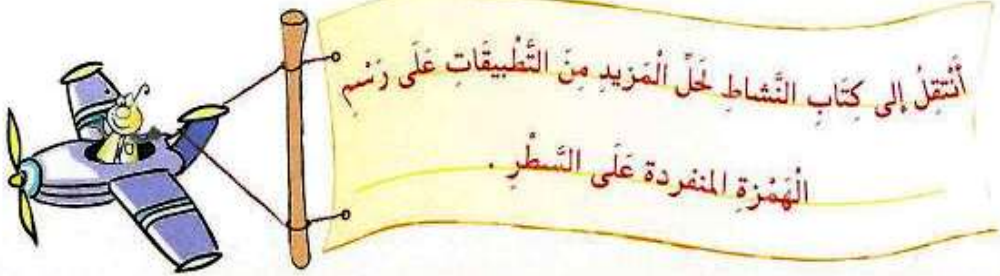 أَنْتَقِلُ إِلى كِتَابِ النَّشاطِ لِحَلِّ الْمَزيدِ مِنَ التَّطْبيقَاتِ عَلَى رَسْمِ
الْهَمْزةِ المنفردة عَلَى السَّطْرِ .